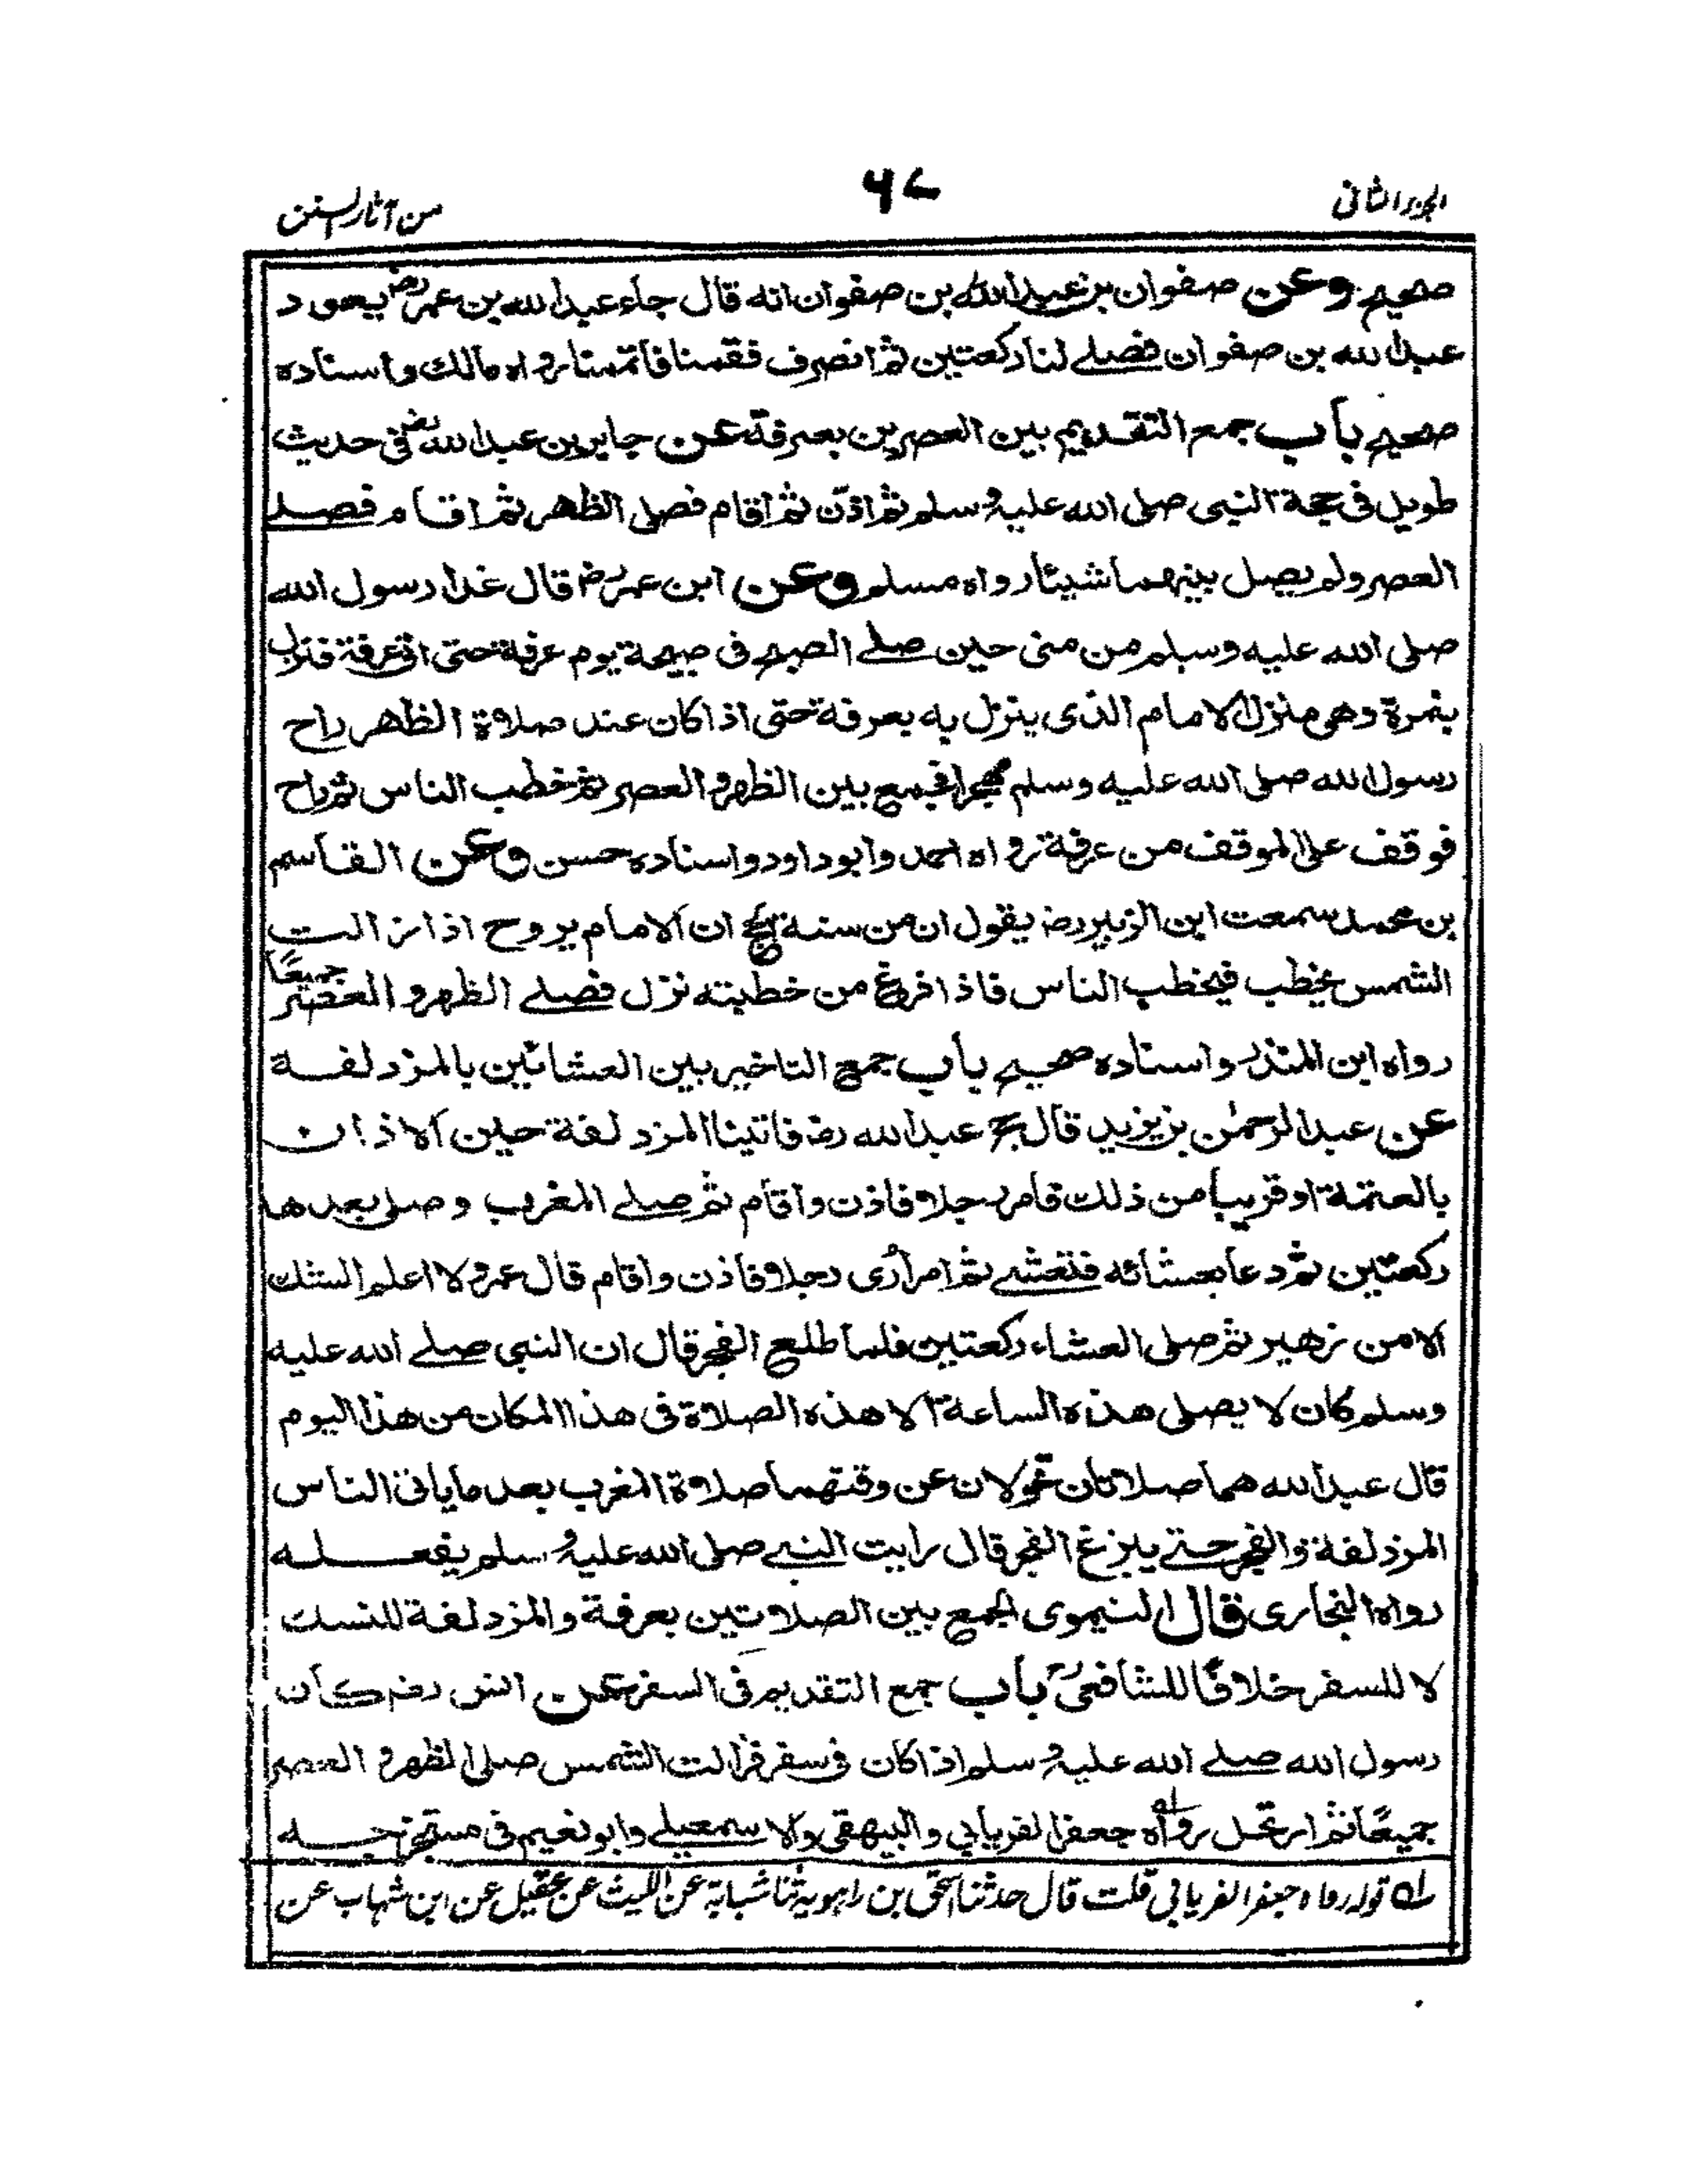 الجزء الثانی
٦٧
من آثار السنن
صحیح وعن صفوان بن عبد الله بن صفوان انه قال جاء عبد الله بن عمر رض یعود
عبد الله بن صفوان فصلے لنا رکعتین ثم انصرف فقمنا فأتممنا رواه مالك واسناده
صحیح باب جمع التقدیم بین العصرین بعرفة عن جابر بن عبد الله رض فی حدیث
طویل فی حجة النبی صلی الله علیه وسلم ثم اذن ثم اقام فصلی الظهر ثم اقام فصلے
العصر ولم یصل بینهما شیئا رواه مسلم وعن ابن عمر رض قال غدا رسول الله
صلی الله علیه وسلم من منی حین صلے الصبح فی صبیحة یوم عرفة حتی اتی عرفة فنزل
بنمرة وهی منزل الامام الذی ینزل به بعرفة حتی اذا کان عند صلاة الظهر راح
رسول الله صلی الله علیه وسلم مهجرا فجمع بین الظهر والعصر ثم خطب الناس ثم راح
فوقف علی الموقف من عرفة رواه احمد وابوداود واسناده حسن وعن القاسم
بن محمد سمعت ابن الزبیر رض یقول ان من سنة الحج ان الامام یروح اذا زالت
الشمس یخطب فیخطب الناس فاذا فرغ من خطبته نزل فصلے الظهر والعصر جمیعًا
رواه ابن المنذر واسناده صحیح باب جمع التاخیر بین العشائین بالمزدلفة
عن عبد الرحمٰن بن یزید قال حج عبد الله رض فاتینا المزدلفة حین الاذان
بالعتمة او قریبا من ذلك فامر رجلا فاذن واقام ثم صلے المغرب وصلی بعدها
رکعتین ثم دعا بعشائه فتعشے ثم امر اُری رجلا فاذن واقام قال عمرو لا اعلم الشك
الا من زهیر ثم صلی العشاء رکعتین فلما طلع الفجر قال ان النبی صلے الله علیه
وسلم کان لا یصلی هذه الساعة الا هذه الصلاة فی هذا المکان من هذا الیوم
قال عبد الله هما صلاتان تحولان عن وقتهما صلاة المغرب بعد ما یاتی الناس
المزدلفة والفجر حتے یبزغ الفجر قال رایت النبے صلی الله علیه وسلم یفعله
رواه البخاری قال النیموی الجمع بین الصلاتین بعرفة والمزدلفة للنسك
لا للسفر خلافًا للشافعی رح باب جمع التقدیم فی السفر عن انس رض کان
رسول الله صلے الله علیه وسلم اذا کان فی سفر فزالت الشمس صلی الظهر والعصر
جمیعًا ثم ارتحل رواه له جعفر الفریابی والبیهقی والاسمعیلے وابونعیم فی مستخرجه
له قوله رواه جعفر الفریابی قلت قال حدثنا اسحٰق بن راہویة ثنا شبابة عن اللیث عن عقیل عن ابن شہاب عن